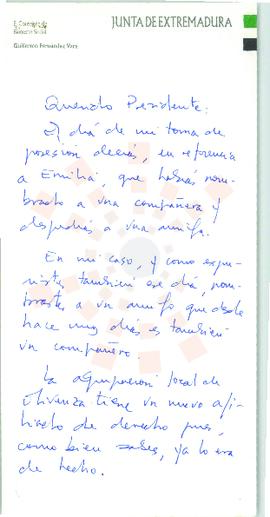 El Consejero de
Bienestar Social
Guillermo Fernández Vara
JUNTA DE EXTREMADURA
Querido Presidente:
El día de mi toma de
posesión decías, en referencia
a Emilia, que habías nom-
brado a una compañera y
despedías a una amiga.
En mi caso, y como expu-
siste también ese día, nom-
braste a un amigo que desde
hace unos días es también
un compañero.
La agrupación local de
Olivenza tiene un nuevo afi-
liado de derecho pues,
como bien sabes, ya lo era
de hecho.